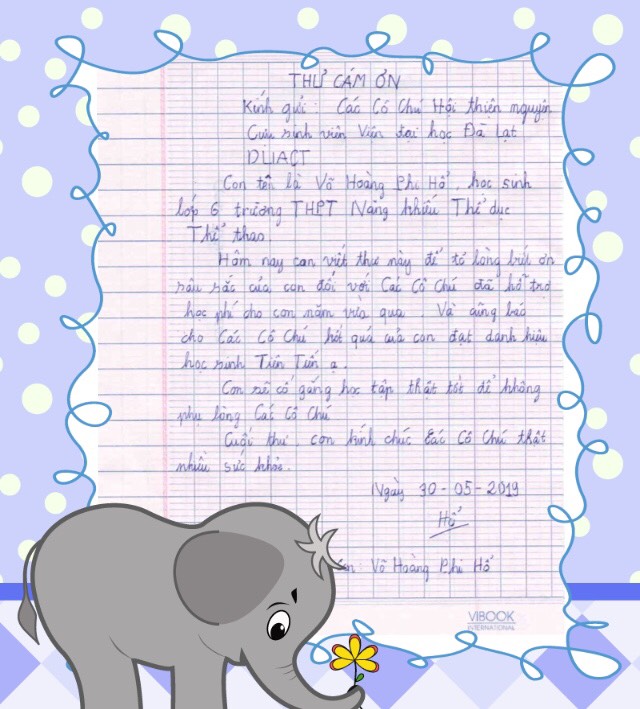 THƯ CÁM ƠN
Kính gửi : Các Cô Chú Hội thiện nguyện
Cựu sinh viên Viện đại học Đà Lạt
DLIACT
Con tên là Võ Hoàng Phi Hổ, học sinh
lớp 6 trường THPT Năng khiếu Thể dục
Thể thao.
Hôm nay con viết thư này để tỏ lòng biết ơn
sâu sắc của con đối với Các Cô Chú đã hỗ trợ
học phí cho con năm vừa qua. Và cũng báo
cho Các Cô Chú kết quả của con đạt danh hiệu
học sinh Tiên Tiến ạ.
Con sẽ cố gắng học tập thật tốt để không
phụ lòng Các Cô Chú
Cuối thư, con kính chúc Các Cô Chú thật
nhiều sức khỏe.
Ngày 30-05-2019
Hổ
Võ Hoàng Phi Hổ
VIBOOK
INTERNATIONAL